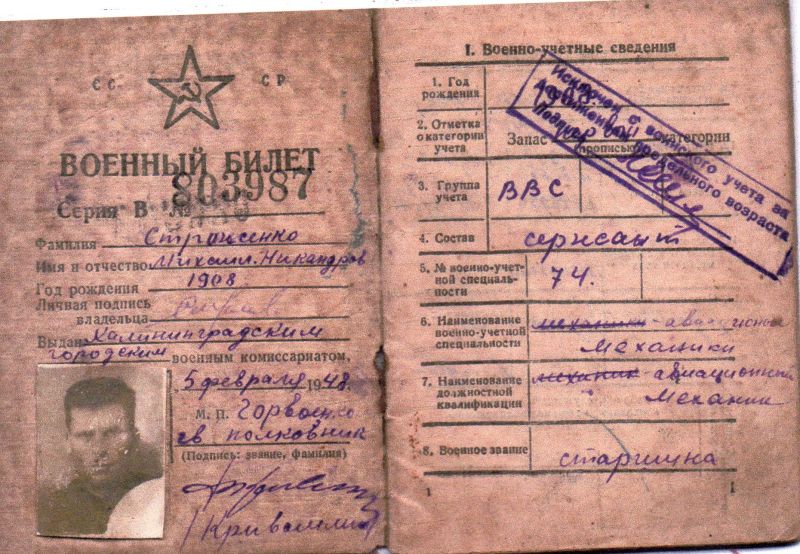 СС СР
ВОЕННЫЙ БИЛЕТ
Серия В № 803987
Фамилия Стриженко
Имя и отчество Михаил Никандров
Год рождения 1908
Личная подпись
владельца
Выдан Калининградским
городским военным комиссариатом,
5 февраля 1948.
М. П. Горвоенко
полковник
(Подпись: звание, фамилия)
I. Военно-учетные сведения
1. Год
рождения 1908
2. Отметка
о категории
учета
Запас категории
прописью
3. Группа
учета ВВС
4. Состав сержант
5. № военно-учет-
ной специаль-
ности 74.
6. Наименование
военно-учетной
специальности
механик авиационный
механики
7. Наименование
должностной
квалификации
механик авиационный
механик
8. Военное звание старшина
1 1
Исключен с воинского учета за
достижением предельного возраста
Подпись